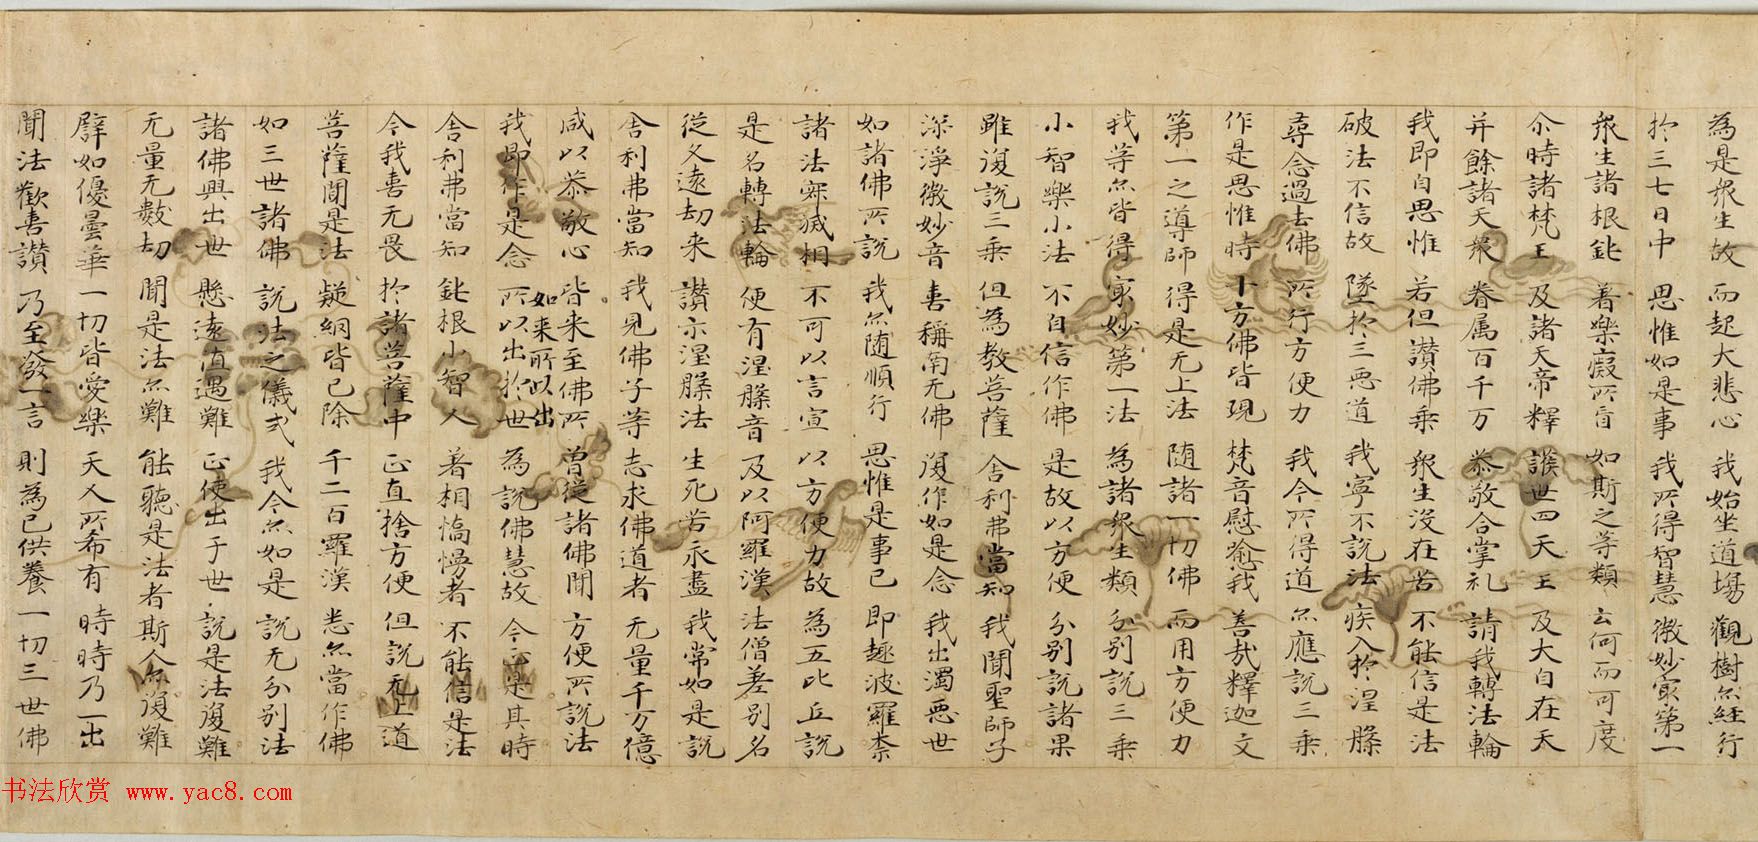 為是衆生故　而起大悲心　我始坐道場　觀樹亦經行
於三七日中　思惟如是事　我所得智慧　微妙冣第一
衆生諸根鈍　著樂癡所盲　如斯之等類　云何而可度
尒時諸梵王　及諸天帝釋　護世四天王　及大自在天
并餘諸天衆　眷属百千万　恭敬合掌礼　請我轉法輪
我即自思惟　若但讃佛乗　衆生没在苦　不能信是法
破法不信故　墜於三悪道　我寧不說法　疾入於涅槃
尋念過去佛　所行方便力　我今所得道　亦應說三乗
作是思惟時　十方佛皆現　梵音慰喻我　善㢤釋迦文
第一之導師　得是无上法　随諸一切佛　而用方便力
我等亦皆得　冣妙第一法　為諸衆生類　分別說三乗
小智樂小法　不自信作佛　是故以方便　分別說諸果
雖復説三乗　但為教菩薩　舍利弗當知　我聞聖師子
深淨微妙音　喜稱南无佛　復作如是念　我出濁悪世
如諸佛所説　我亦随順行　思惟是事已　即趣波羅柰
諸法寂滅相　不可以言宣　以方便力故　為五比丘説
是名轉法輪　便有涅槃音　及以阿羅漢　法僧差別名
従久遠劫来　讃示涅槃法　生死苦永盡　我常如是説
舍利弗當知　我見佛子等　志求佛道者　无量千万億
咸以恭敬心　皆来至佛所　曽従諸佛聞　方便所説法
如来所以出
我即作是念　所以出於世　為説佛慧故　今正是其時
舍利弗當知　鈍根小智人　著相憍慢者　不能信是法
今我喜无畏　於諸菩薩中　正直捨方便　但説无上道
菩薩聞是法　疑網皆已除　千二百羅漢　悉亦當作佛
如三世諸佛　說法之儀式　我今亦如是　説无分別法
諸佛興出世　懸遠值遇難　正使出于世　説是法復難
无量无數劫　聞是法亦難　能聽是法者　斯人亦復難
譬如優曇華　一切皆愛樂　天人所希有　時時乃一出
聞法歡喜讃　乃至發一言　則為已供養　一切三世佛
书法欣赏 www.yac8.com